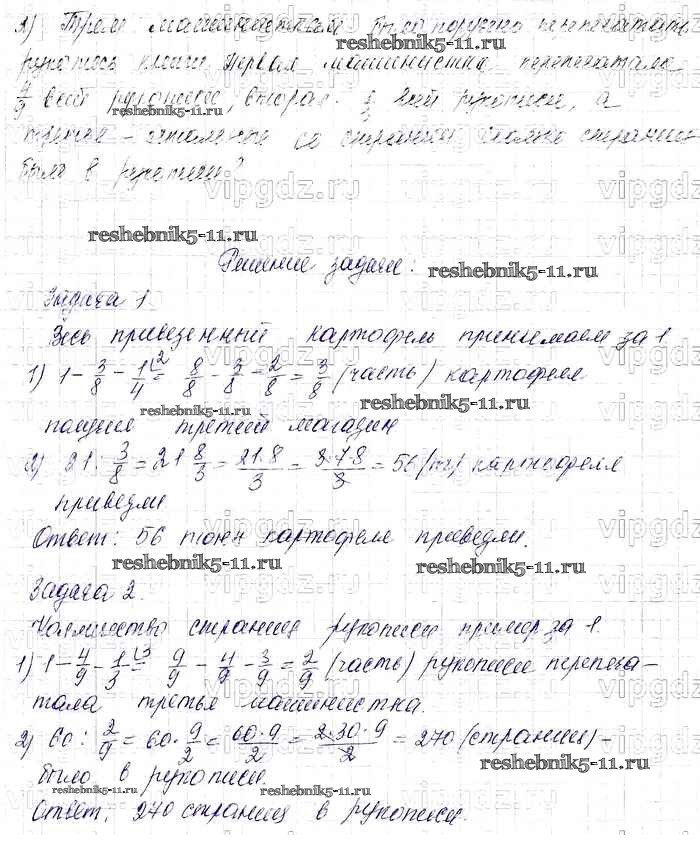 2) Трем машинисткам было поручено перепечатать
рукопись книги. Первая машинистка перепечатала
4/9 всей рукописи, вторая - 1/3 всей рукописи, а
третья - остальные 60 страниц. Сколько страниц
было в рукописи?
reshebnik5-11.ru
Решение задачи:
Задача 1
Весь привезенный картофель принимаем за 1
1) 1 - 3/8 - 1/4 = 8/8 - 3/8 - 2/8 = 3/8 (часть) картофеля
получил третий магазин
2) 21 : 3/8 = 21 8/3 = 21·8/3 = 3·7·8/3 = 56 (т) картофеля
привезли
Ответ: 56 тонн картофеля привезли.
Задача 2.
Количество страниц рукописи примем за 1.
1) 1 - 4/9 - 1/3 = 9/9 - 4/9 - 3/9 = 2/9 (часть) рукописи перепеча-
тала третья машинистка.
2) 60 : 2/9 = 60 · 9/2 = 60·9/2 = 2·30·9/2 = 270 (страниц) -
было в рукописи.
Ответ: 270 страниц в рукописи.
vipgdz.ru